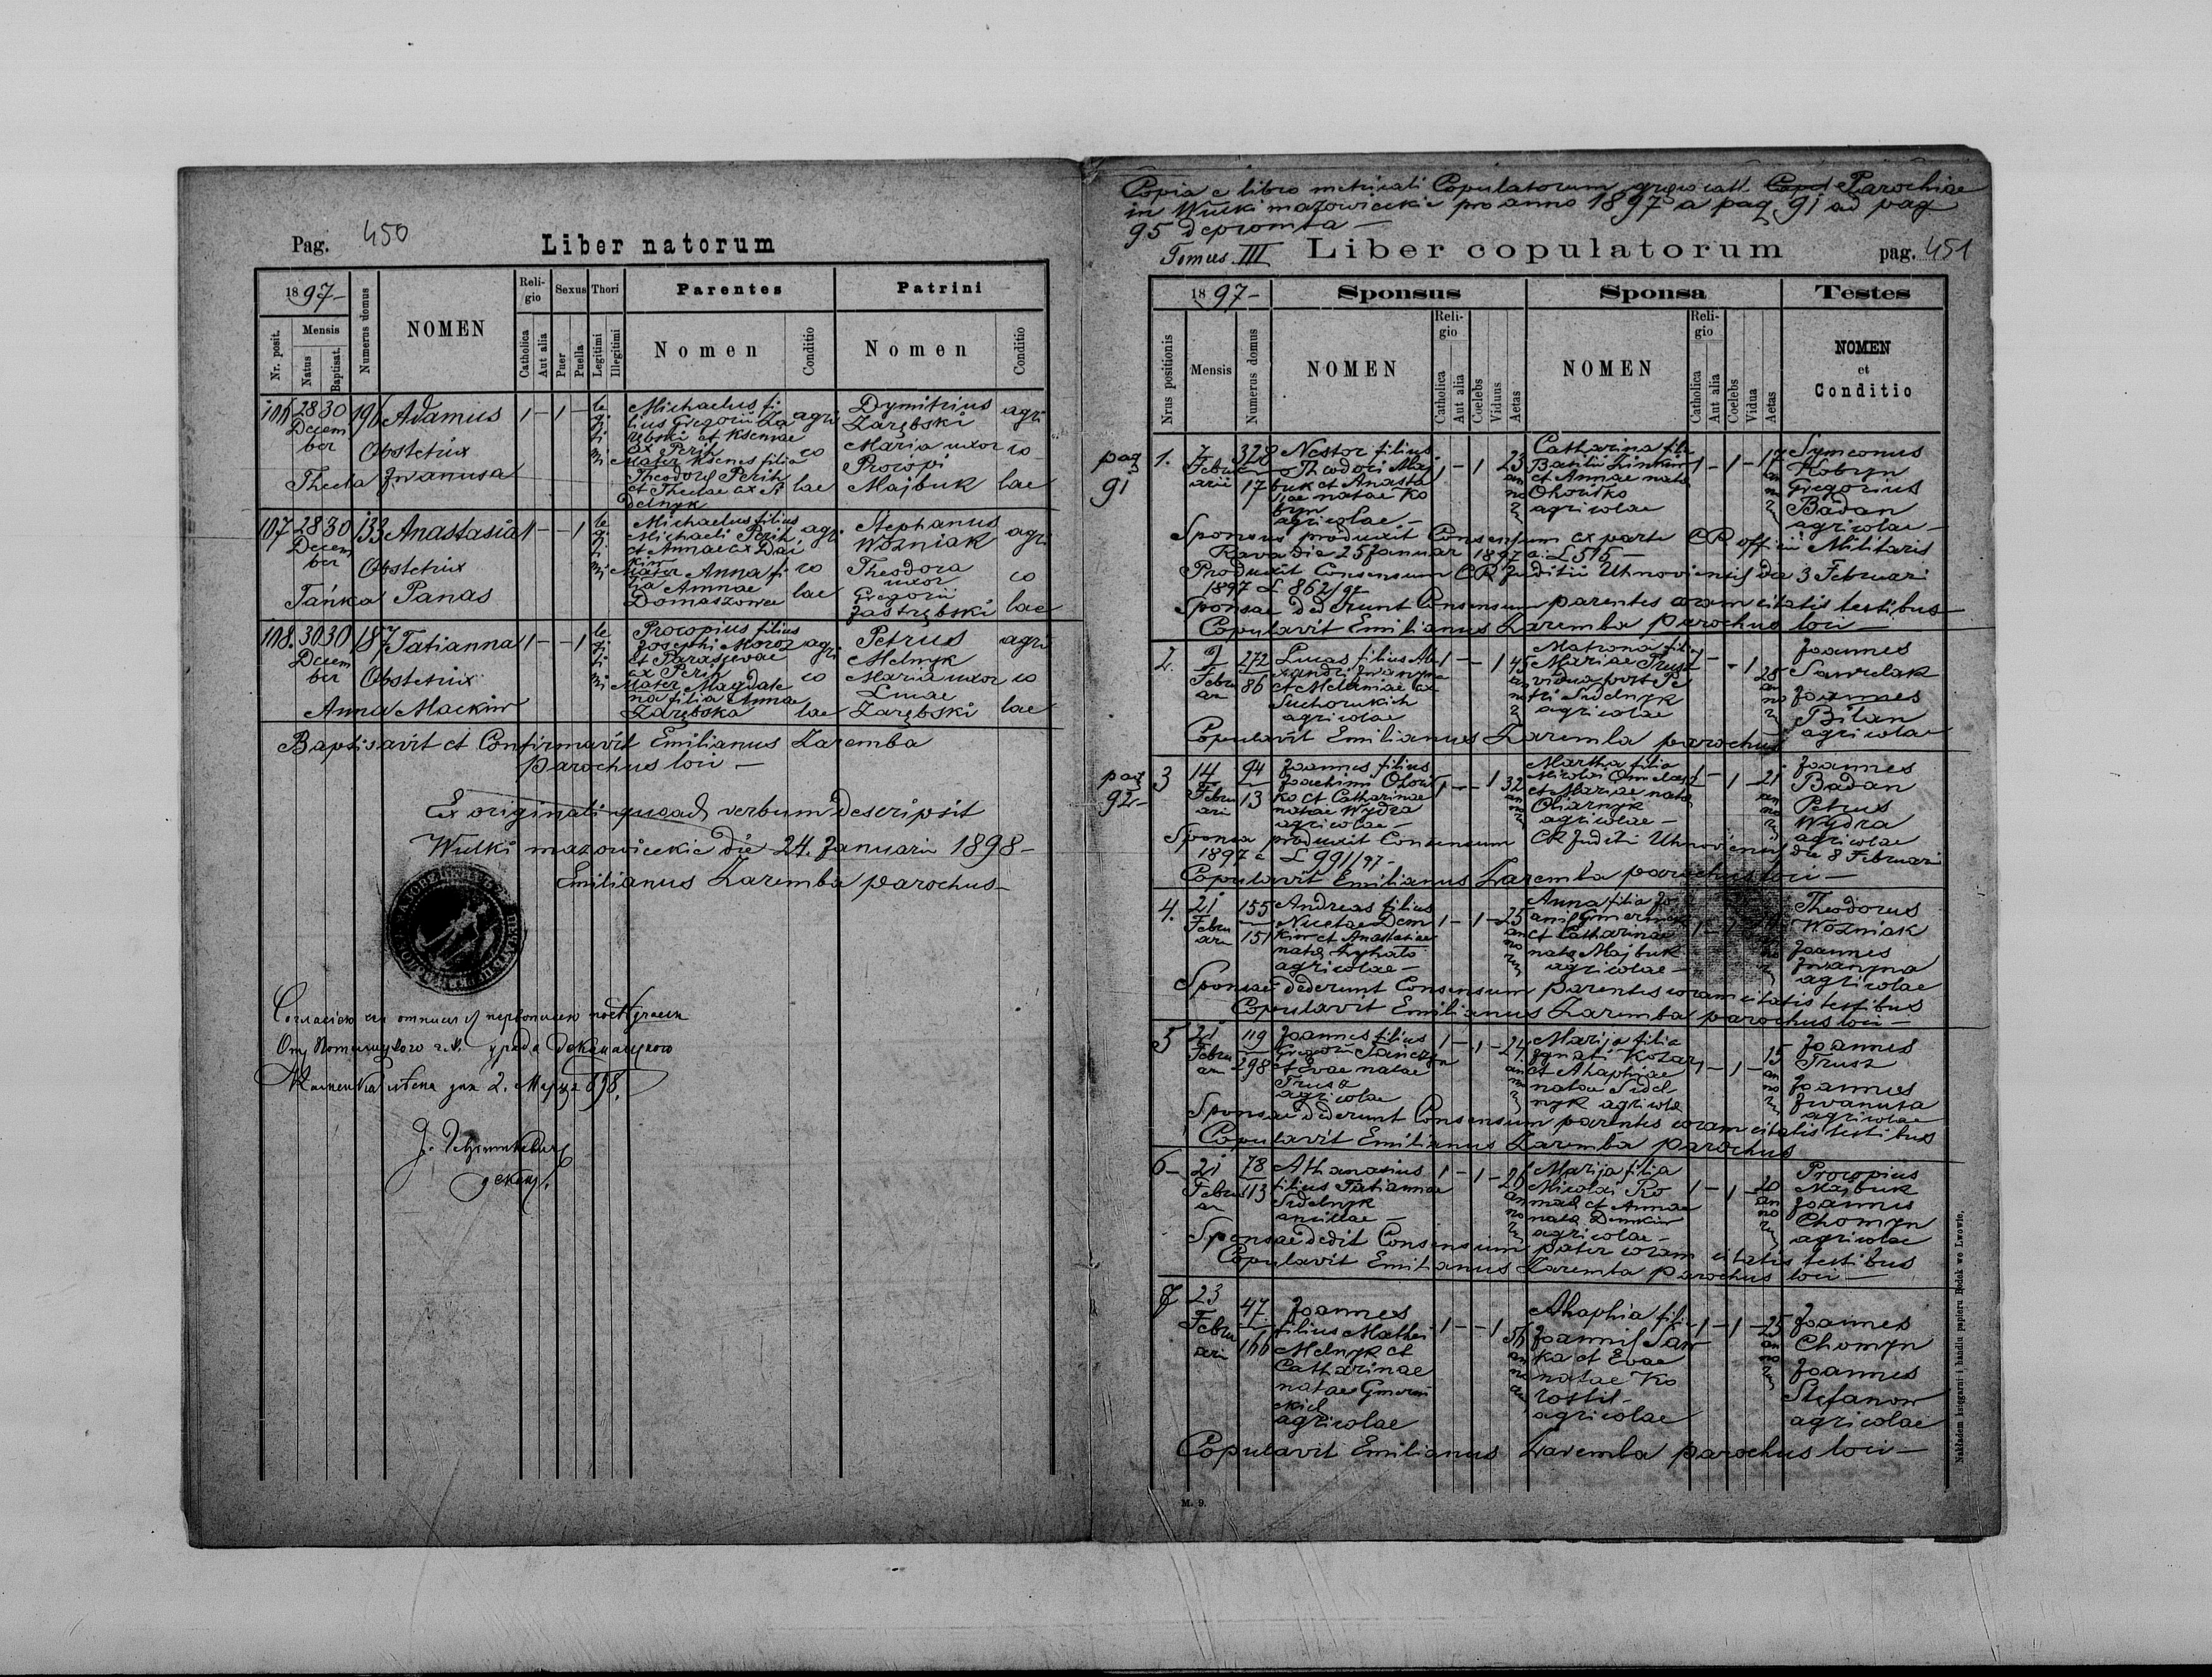 Pag. 450
Liber natorum
1897-
Numerus domus
NOMEN
Religio
Sexus
Thori
Parentes
Patrini
Nr. posit.
Mensis
Natus
Baptisat.
Catholica
Aut alia
Puer
Puella
Legitimi
Illegitimi
Nomen
Conditio
Nomen
Conditio
106 28 30 196 Adamus 1 - 1 -
Decem
ber
Obstetrix
Thecla Iwanusa
le
gi
ti
mi
Michaelus fi
lius Gregorii Za
rębski et Kseniae
ex Perih
Mater Ksenes filia
Theodori Perih
et Theclae ex Si
delnyk
agri
co
lae
Dymitrius
Zarębski
Maria uxor
Procopi
Majbuk
agri
co
lae
107 28 30 133 Anastasia 1 - - 1
Decem
ber
Obstetrix
Tańka Panas
le
gi
ti
mi
Michaelus filius
Michaeli Perih
et Annae ex Dai
kiw
Mater Anna fi
lia Annae
Domaszowa
agri
co
lae
Stephanus
Wożniak
Theodora
uxor
Gregorii
Jastrębski
agri
co
lae
108. 30 30 187 Tatianna 1 - - 1
Decem
ber
Obstetrix
Anna Mackiw
le
gi
ti
mi
Procopius filius
Josephi Moroz
et Parascevae
ex Perih
Mater Magdale
na filia Annae
Zarębska
agri
co
lae
Petrus
Melnyk
Maria uxor
Lucae
Zarębski
agri
co
lae
Baptisavit et Confirmavit Emilianus Zaremba
parochus loci -
Ex originali quoad verbum descripsit
Wulki mazowieckie die 24. Januarii 1898 -
Emilianus Zaremba parochus -
2. Марця 898.
Copia e libro metricali Copulatorum graeco cath. Parochiae
in Wulki mazowieckie pro anno 1897 a pag 91 ad pag
95 depromta -
Tomus III
Liber copulatorum
pag. 451
1897-
Sponsus
Sponsa
Testes
Nrus positionis
Mensis
Numerus domus
NOMEN
Religio
Catholica
Aut alia
Coelebs
Viduus
Aetas
NOMEN
Religio
Catholica
Aut alia
Coelebs
Vidua
Aetas
NOMEN
et
Conditio
pag
91
1. 7
Febru
arii
328
17
Nestor filius
Theodori Maj
buk et Anasta
siae natae Ko
bryn
agricolae -
1 - 1 23
an
no
Catharina filia
Basilii Linkiw
et Annae nata
Ohorilko
agricolae
1 - 1 - 17
an
no
Symeonus
Kobryn
Gregorius
Badan
agricolae -
Sponsus produxit Consensum ex parte CR officii Militaris
Rava die 25 Januar 1897 a: L 515 -
Produxit Consensum CR Juditii Uhnoviensis da 3 Februari
1897 L 862/97
Sponsae dederunt Consensum parentes coram citatis testibus -
Copulavit Emilianus Zaremba parochus loci -
2.
Febru
ari
272
86
Lucas filius Ale
xandri Iwanyna
et Melaniae ex
Suchorukich
agricolae
1 - - 1 45
Matrona filia
Mariae Trusz
vidua post Pe
tri Sidelnyk
agricolae
1 - - 1 28
an
no
Joannes
Sawulak
Joannes
Bilan
agricolae
Copulavit Emilianus Zaremba parochus
pag
92 -
3 14
Febru
ari
94
13
Joannes filius
Joachimi Ohoril
ko et Catharinae
natae Wydra
agricolae -
1 - - 1 32
an
no
Martha filia
Nicolai Omelasz
et Mariae nata
Oliarnyk
agricolae -
1 - 1 21
an
no
Joannes
Badan
Petrus
Wydra
agricolae
Sponsa produxit Consensum CR Juditii Uhnoviensis da 8 Februari
1897 a L 991/97 -
Copulavit Emilianus Zaremba parochus loci -
4. 21
Febru
ari
155
151
Andreas filius
Nicetae Dem
kiw et Anastasiae
nata Lyhalo
agricolae -
1 - 1 - 25
an
no
Anna filia Jo
anis Gmernicki
et Catharinae
nata Majbuk
agricolae -
Theodorus
Wożniak
Joannes
Iwanyna
agricolae
Sponsae dederunt Consensum parentes coram citatis testibus
Copulavit Emilianus Zaremba parochus loci -
5 21
Febru
ari
119
298
Joannes filius
Gregorii Sanczyn
et Evae natae
Trusz
agricolae
1 - 1 - 24
an
no
Marija filia
Ignati Kotar
et Ahaphiae
natae Sidel
nyk agricolae
1 - 1 - 15
an
no
Joannes
Trusz
Joannes
Iwanusa
agricolae
Sponsae dederunt Consensum parentes coram citatis testibus
Copulavit Emilianus Zaremba parochus
6 - 21
Febru
ari
78
113
Athanasius
filius Tatiannae
Sidelnyk
ancillae -
1 - 1 - 26
an
no
Marija filia
Nicolai Ro
man et Annae
nata Demkiw
agricolae -
1 - 1 - 20
an
no
Procopius
Majbuk
Joannes
Chomyn
agricolae
Sponsae dedit Consensum pater coram citatis testibus
Copulavit Emilianus Zaremba parochus loci -
7 23
Febru
ari
47
166
Joannes
filius Mathei
Melnyk et
Catharinae
natae Gmerni
ckich
agricolae
1 - - 1 56
an
no
Ahaphia filia
Joannis Saw
ka et Evae
natae Ko
rostil -
agricolae
1 - 1 - 25
an
no
Joannes
Chomyn
Joannes
Stefanow
agricolae
Copulavit Emilianus Zaremba parochus loci -
M. 9.
Nakładem księgarni i handlu papieru Bodek we Lwowie.